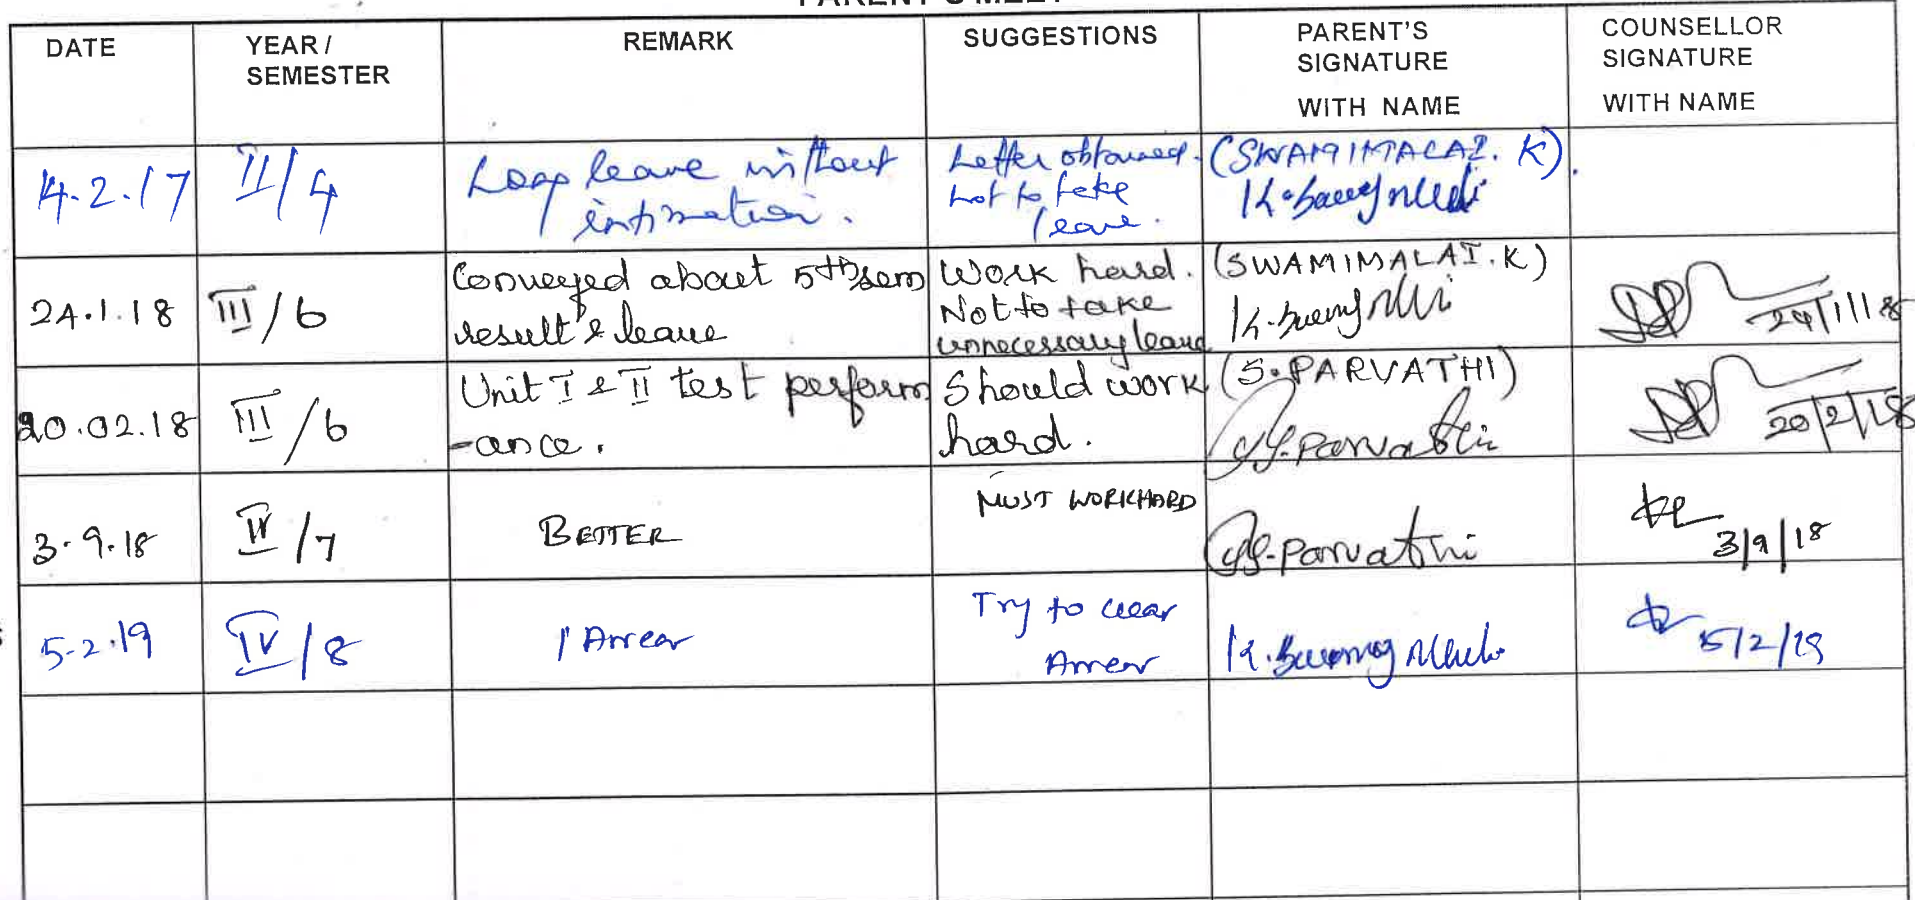 PARENT'S MEET
DATE
YEAR /
SEMESTER
REMARK
SUGGESTIONS
PARENT'S
SIGNATURE
WITH NAME
COUNSELLOR
SIGNATURE
WITH NAME
14.2.17
II/4
Long leave without
intimation.
Letter obtained.
Not to take
leave.
(SWAMIMALAI. K).
24.1.18
III/6
Conveyed about 5th sem
result & leave
Work hard.
Not to take
unnecessary leave
(SWAMIMALAI. K)
24/1/18
20.02.18
III/6
Unit I & II test perform
-ance.
Should work
hard.
(S. PARVATHI)
S. Parvathi
20/2/18
3.9.18
IV/7
BETTER
MUST WORKHARD
S. Parvathi
3/9/18
5.2.19
IV/8
1 Arrear
Try to clear
Arrear
5/2/19